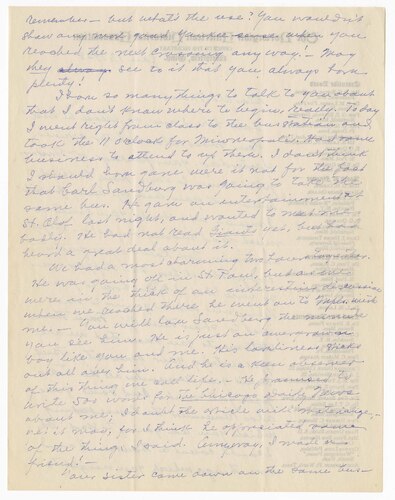 remember — but what's the use? You wouldn't
show any most good Yankee sense when you
reached the next evening any way! — May
they always see to it that you always have
plenty!
I have so many things to talk to you about
that I don't know where to begin, really. Today
I went right from class to the bus station and
took the 11 o'clock for Minneapolis. Had some
business to attend to up there. I don't think
I should have gone were it not for the fact
that Carl Sandburg was going to take the
same bus. He gave an entertainment at
St. Olaf last night, and wanted to meet me
badly. He had not read Giants yet, but had
heard a great deal about it.
We had a most charming two hours
He was going off in St. Paul, but as we
were in the thick of an interesting discussion
when we reached there he went on to Mpls. with
me. — You will love Sandburg the minute
you see him. He is just an overgrown
boy like you and me. His loneliness sticks
out all over him. And he is a keen observer
of this thing we call life. — He promised to
write 500 words for The Chicago Daily News
about me. I doubt the article will materialize,
yet it may, for I think he appreciated some
of the things I said. Anyway, I made a
friend! —
Your sister came down on the same bus